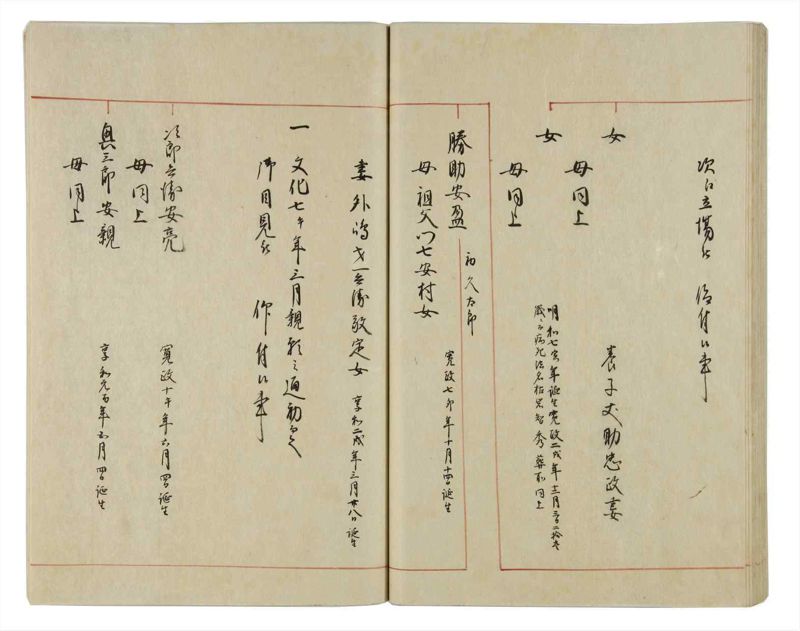 次江立場江 被仰付候事
女 養子丈助忠政妻
母同上
女 明和七寅年誕生寛政二戌年十二月
歳ニ而病死法名 智秀葬所同上
母同上
初久太郎
勝助安盈 寛政七卯年十月 誕生
母祖父門七安村女
妻 外嶋才一兵衛敬定女 享和二戌年三月廿八日誕生
一 文化七午年三月親願之通初而
御目見江 仰付候事
次郎兵衛安亮 寛政十午年六月 誕生
母同上
奥三郎安親 享和元酉年 月 誕生
母同上